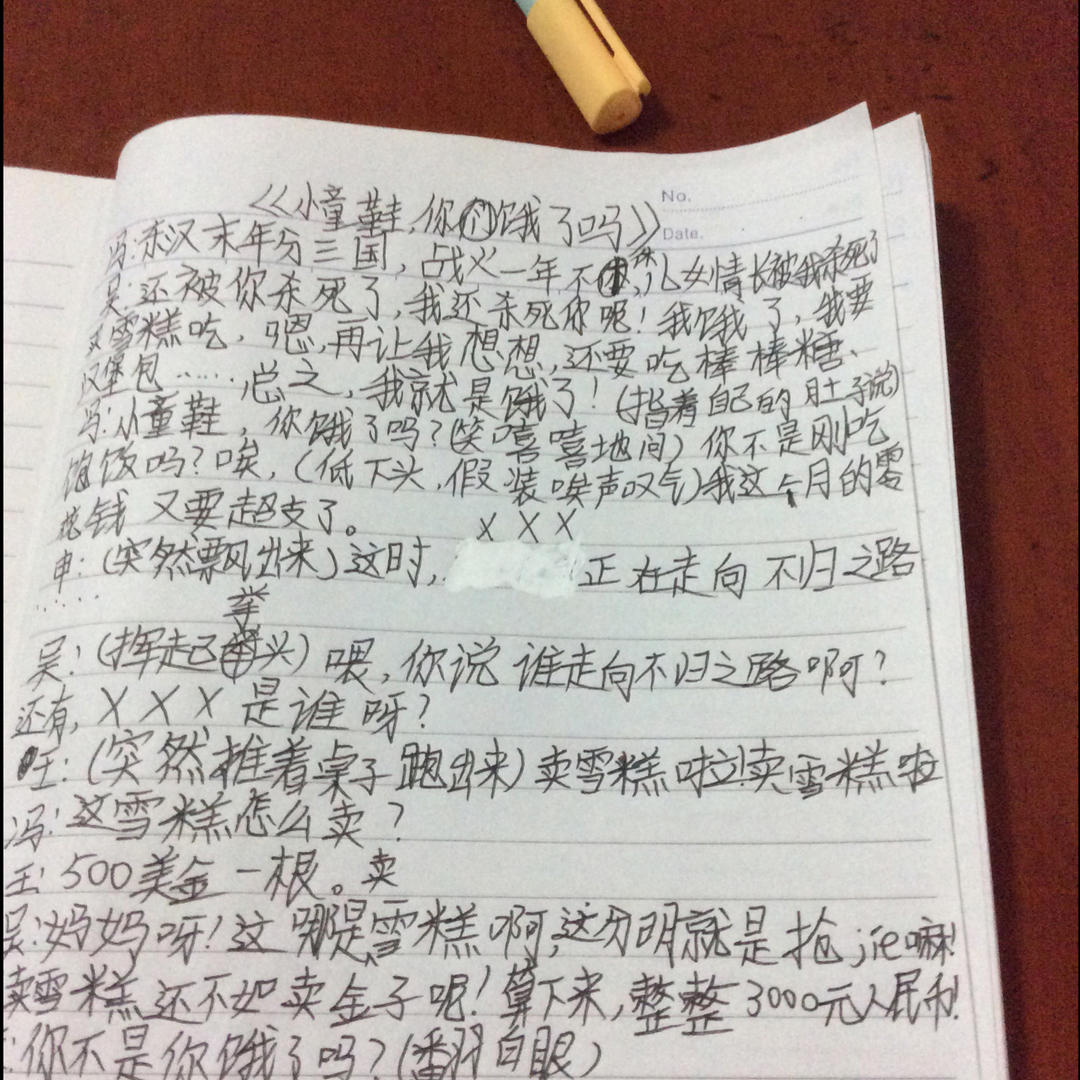 No.
《小童鞋,你饿了吗》
Date.
冯:东汉末年分三国,战火一年不休,儿女情长被我杀死了
吴:还被你杀死了,我还杀死你呢!我饿了,我要
雪糕吃,嗯,再让我想想,还要吃棒棒糖、
汉堡包……总之,我就是饿了!(指着自己的肚子说)
冯:小童鞋,你饿了吗?(笑嘻嘻地问)你不是刚吃
饱饭吗?唉,(低下头,假装唉声叹气)我这个月的零
花钱又要超支了。
XXX
申:(突然飘出来)这时,正在走向不归之路
……
吴:(挥起己拳头)喂,你说谁走向不归之路啊?
还有,XXX是谁呀?
王:(突然推着桌子跑出来)卖雪糕啦!卖雪糕啦
冯:这雪糕怎么卖?
王:500美金一根。卖
吴:妈妈呀!这哪是雪糕啊,这分明就是抢jie嘛!
卖雪糕还不如卖金子呢!算下来,整整3000元人民币!
:你不是你饿了吗?(翻白眼)